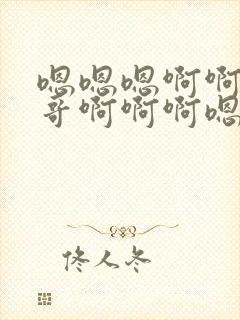 嗯嗯嗯啊啊
哥啊啊啊嗯
佟人冬